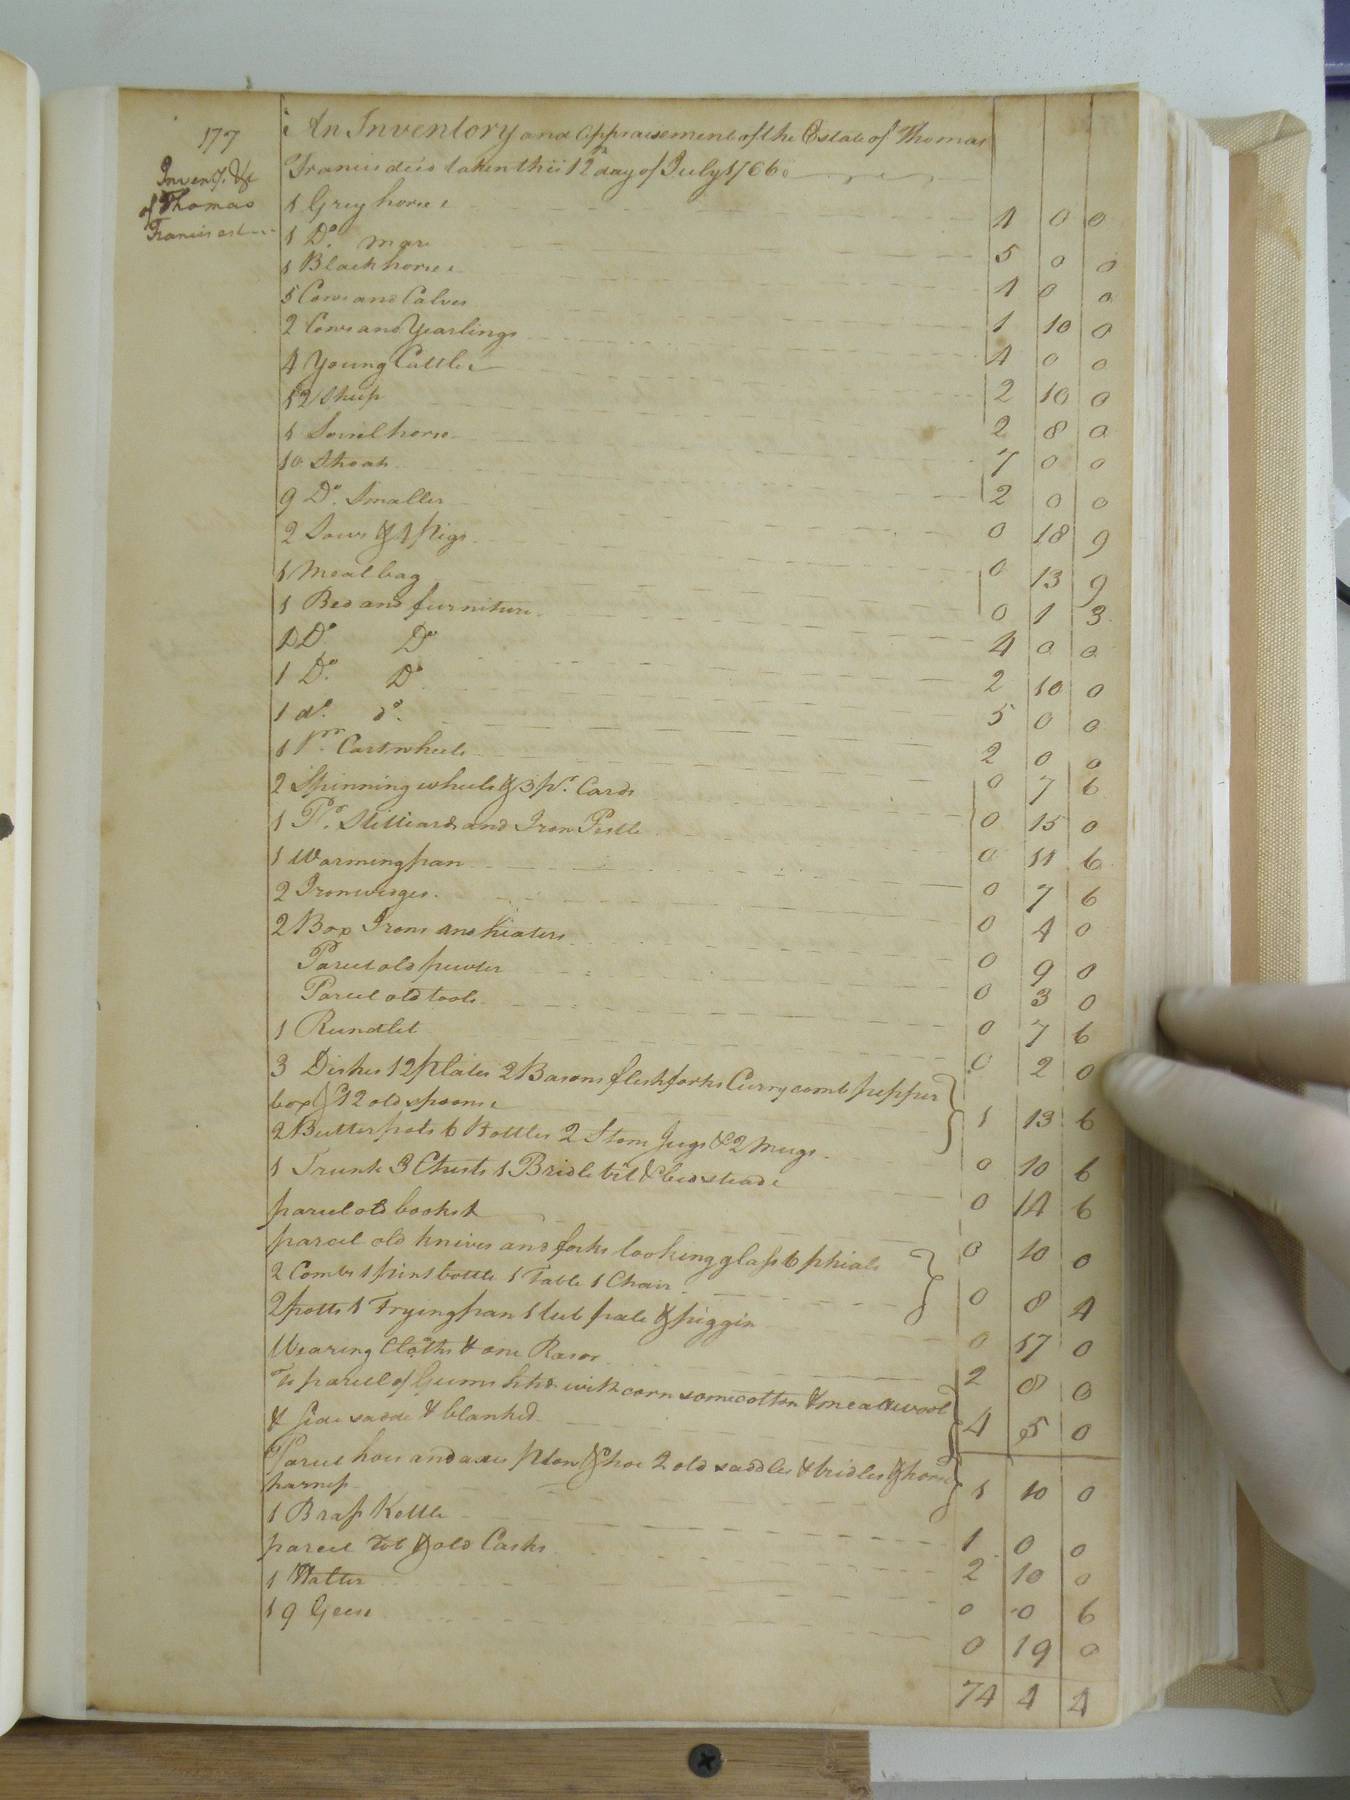 177
Inven.y &c
of Thomas
Francis est
An Inventory and Appraisement of the Estate of Thomas
Francis dec'd taken this 12th day of July 1766
1 Grey horse 4 0 0
1 Do. mare 5 0 0
1 Black horse 4 0 0
5 Cows and Calves 1 10 0
2 Cows and Yearlings 4 0 0
4 Young Cattle 2 10 0
12 Sheep 2 8 0
1 Sorrel horse 7 0 0
10 Shoats 2 0 0
9 Do. Smaller 0 18 9
2 Sows & 9 Pigs 0 13 9
1 Meal bag 0 1 3
1 Bed and furniture 4 0 0
1 Do Do 2 10 0
1 Do. Do 5 0 0
1 do. do. 2 0 0
1 Pr. Cartwheels 0 7 6
2 Spinning wheels & 3 pr. Cards 0 15 0
1 Pr. Stilliards and Iron Pestle 0 11 6
1 Warming pan 0 7 6
2 Iron wedges 0 4 0
2 Box Irons and heaters 0 9 0
Parcel old pewter 0 3 0
Parcel old tools 0 7 6
1 Rundlet 0 2 0
3 Dishes 12 Plates 2 Basons flesh forks Curry comb pepper
box & 12 old spoons 1 13 6
2 Butter pots 6 Bottles 2 Stone Jugs & 2 Mugs 0 10 6
1 Trunk 3 Chests 1 Bridle bit & bedsteads 0 14 6
parcel old books 0 10 0
parcel old knives and forks looking glass 6 phials
2 Combs 1 pint bottle 1 Table 1 Chair 0 8 4
2 potts 1 Frying pan 1 tub pale & piggin 0 17 0
Wearing Cloths & one Rasor 2 0 0
To parcel of Gums with corn some cotton & wool
& side sadde & blanked 4 5 0
Parcel hoes and axes plow & hoe 2 old saddles & bridles & horse
harness 1 10 0
1 Brass Kettle 1 0 0
parcel & old Casks 2 10 0
1 0 0 6
19 Geese 0 19 0
74 4 4